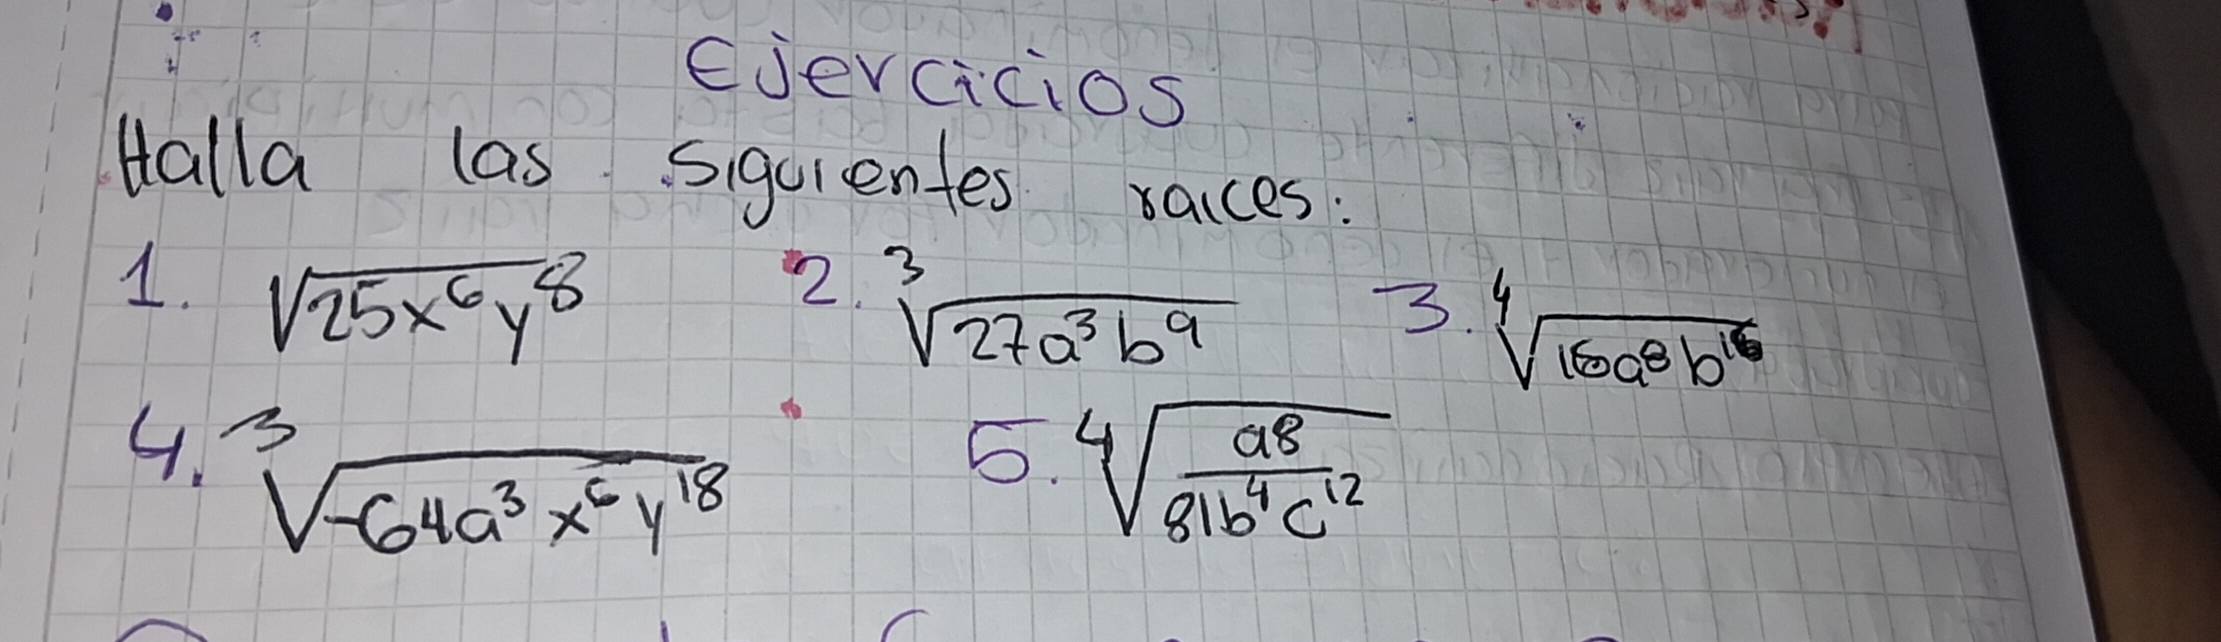 Ejercicios
Halla las siguientes raices:
1. √25x⁶y⁸ 2. ³√27a³b⁹ 3. ⁴√16a⁸b¹⁶
4. ³√-64a³x⁶y¹⁸ 5. ⁴√a8/81b⁴c¹²